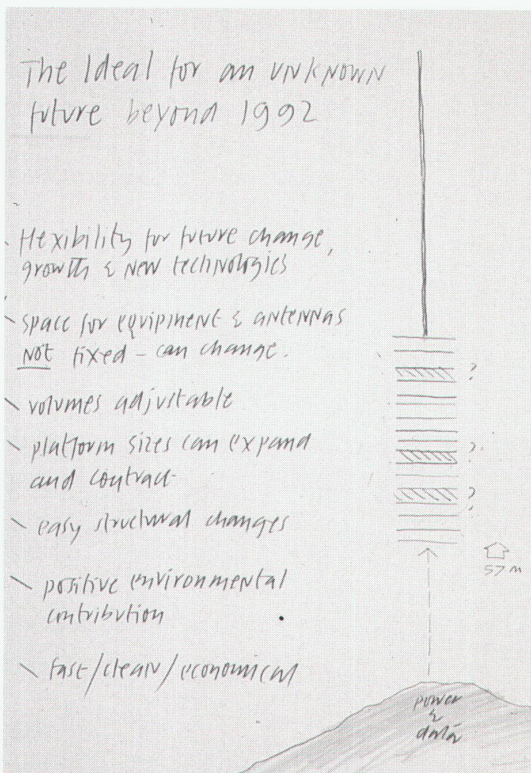 The Ideal for an UNKNOWN
future beyond 1992
Flexibility for future change,
growth & new technologies
space for equipment & antennas
NOT fixed - can change.
volumes adjustable
platform sizes can expand
and contract
easy structural changes
positive environmental
contribution
fast/clean/economical
?
?
?
57 m
power
&
data